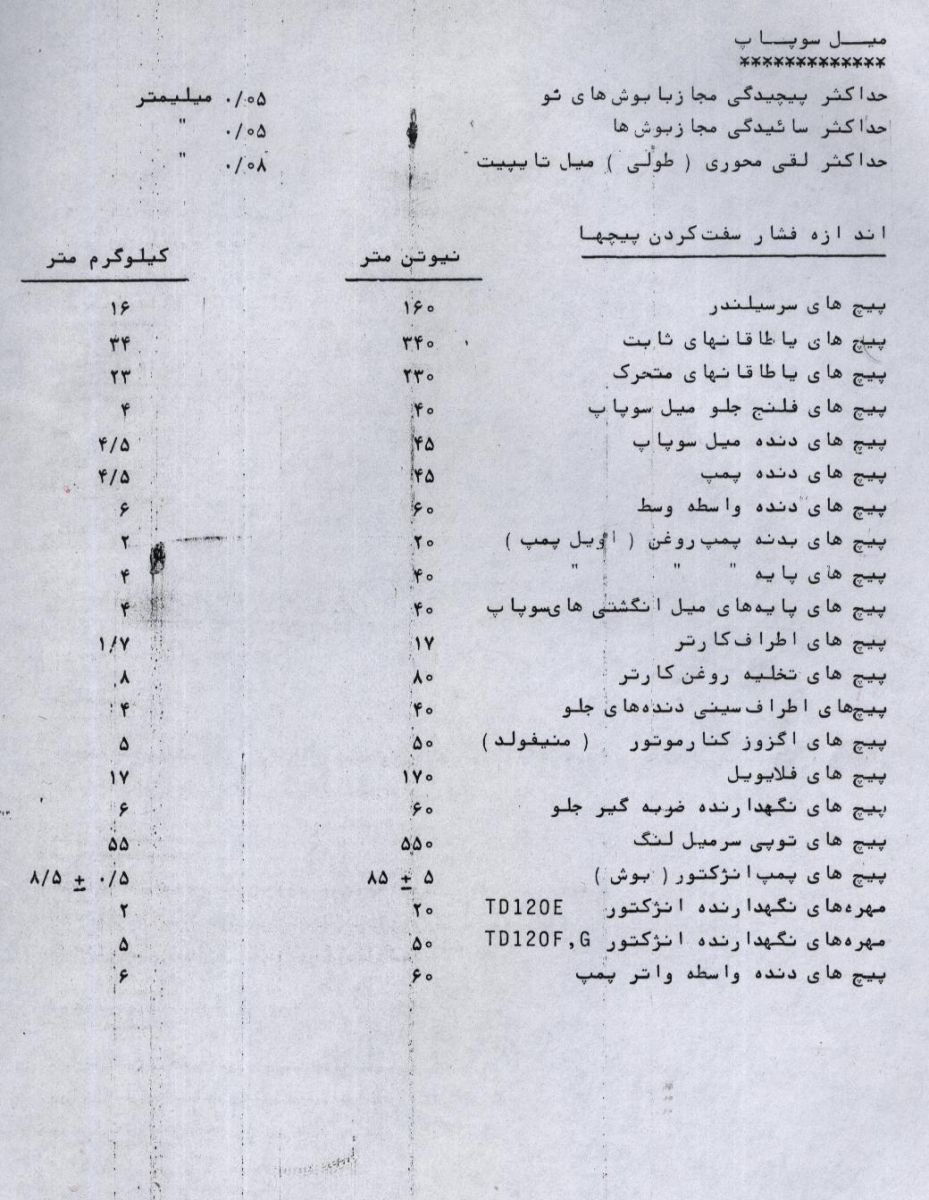 میل سوپاپ
*************
حداکثر پیچیدگی مجاز با بوش های نو ۰/۰۵ میلیمتر
حداکثر سائیدگی مجاز بوش ها ۰/۰۵ "
حداکثر لقی محوری ( طولی ) میل تایپیت ۰/۰۸ "
اندازه فشار سفت کردن پیچها
نیوتن متر کیلوگرم متر
پیچ های سرسیلندر ۱۶۰ ۱۶
پیچ های یاطاقانهای ثابت ۳۴۰ ۳۴
پیچ های یاطاقانهای متحرک ۲۳۰ ۲۳
پیچ های فلنج جلو میل سوپاپ ۴۰ ۴
پیچ های دنده میل سوپاپ ۴۵ ۴/۵
پیچ های دنده پمپ ۴۵ ۴/۵
پیچ های دنده واسطه وسط ۶۰ ۶
پیچ های بدنه پمپ روغن ( اویل پمپ ) ۲۰ ۲
پیچ های پایه " " " ۴۰ ۴
پیچ های پایه‌های میل انگشتی های سوپاپ ۴۰ ۴
پیچ های اطراف کارتر ۱۷ ۱/۷
پیچ های تخلیه روغن کارتر ۸۰ ۸
پیچ‌های اطراف سینی دنده‌های جلو ۴۰ ۴
پیچ های اگزوز کنار موتور ( منیفولد ) ۵۰ ۵
پیچ های فلایویل ۱۷۰ ۱۷
پیچ های نگهدارنده ضربه گیر جلو ۶۰ ۶
پیچ های توپی سرمیل لنگ ۵۵۰ ۵۵
پیچ های پمپ انژکتور ( بوش ) ۸۵ ± ۵ ۸/۵ ± ۰/۵
مهره‌های نگهدارنده انژکتور TD120E ۲۰ ۲
مهره‌های نگهدارنده انژکتور TD120F,G ۵۰ ۵
پیچ های دنده واسطه واتر پمپ ۶۰ ۶